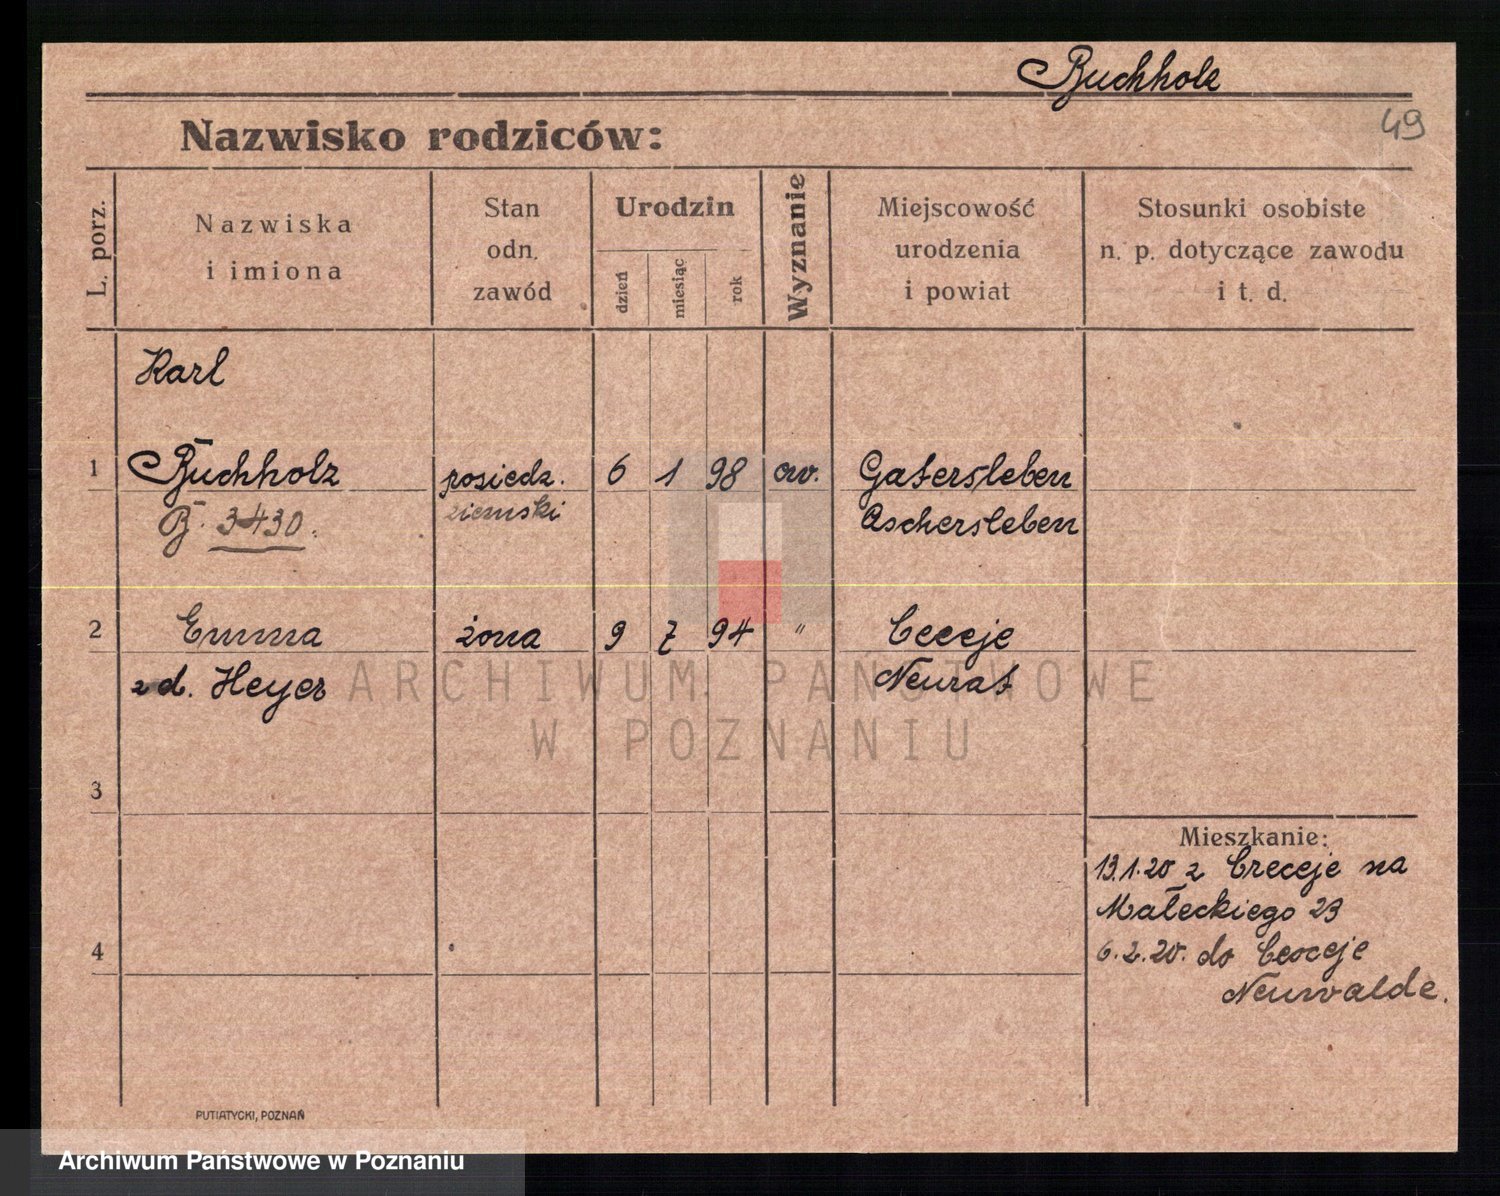 Buchholz
49
Nazwisko rodziców:
L. porz.
Nazwiska
i imiona
Stan
odn.
zawód
Urodzin
dzień
miesiąc
rok
Wyznanie
Miejscowość
urodzenia
i powiat
Stosunki osobiste
n. p. dotyczące zawodu
i t. d.
Karl
1 Buchholz posiedz. 6 1 98 ew. Gatersleben
B. 3430. ziemski Aschersleben
2 Emma żona 9 7 94 "
z d. Heyer
3
4
Mieszkanie:
13.1.20 z na
Małeckiego 23
6.2.20. do
Neuwalde.
PUTIATYCKI, POZNAŃ
ARCHIWUM PAŃSTWOWE
W POZNANIU
Archiwum Państwowe w Poznaniu